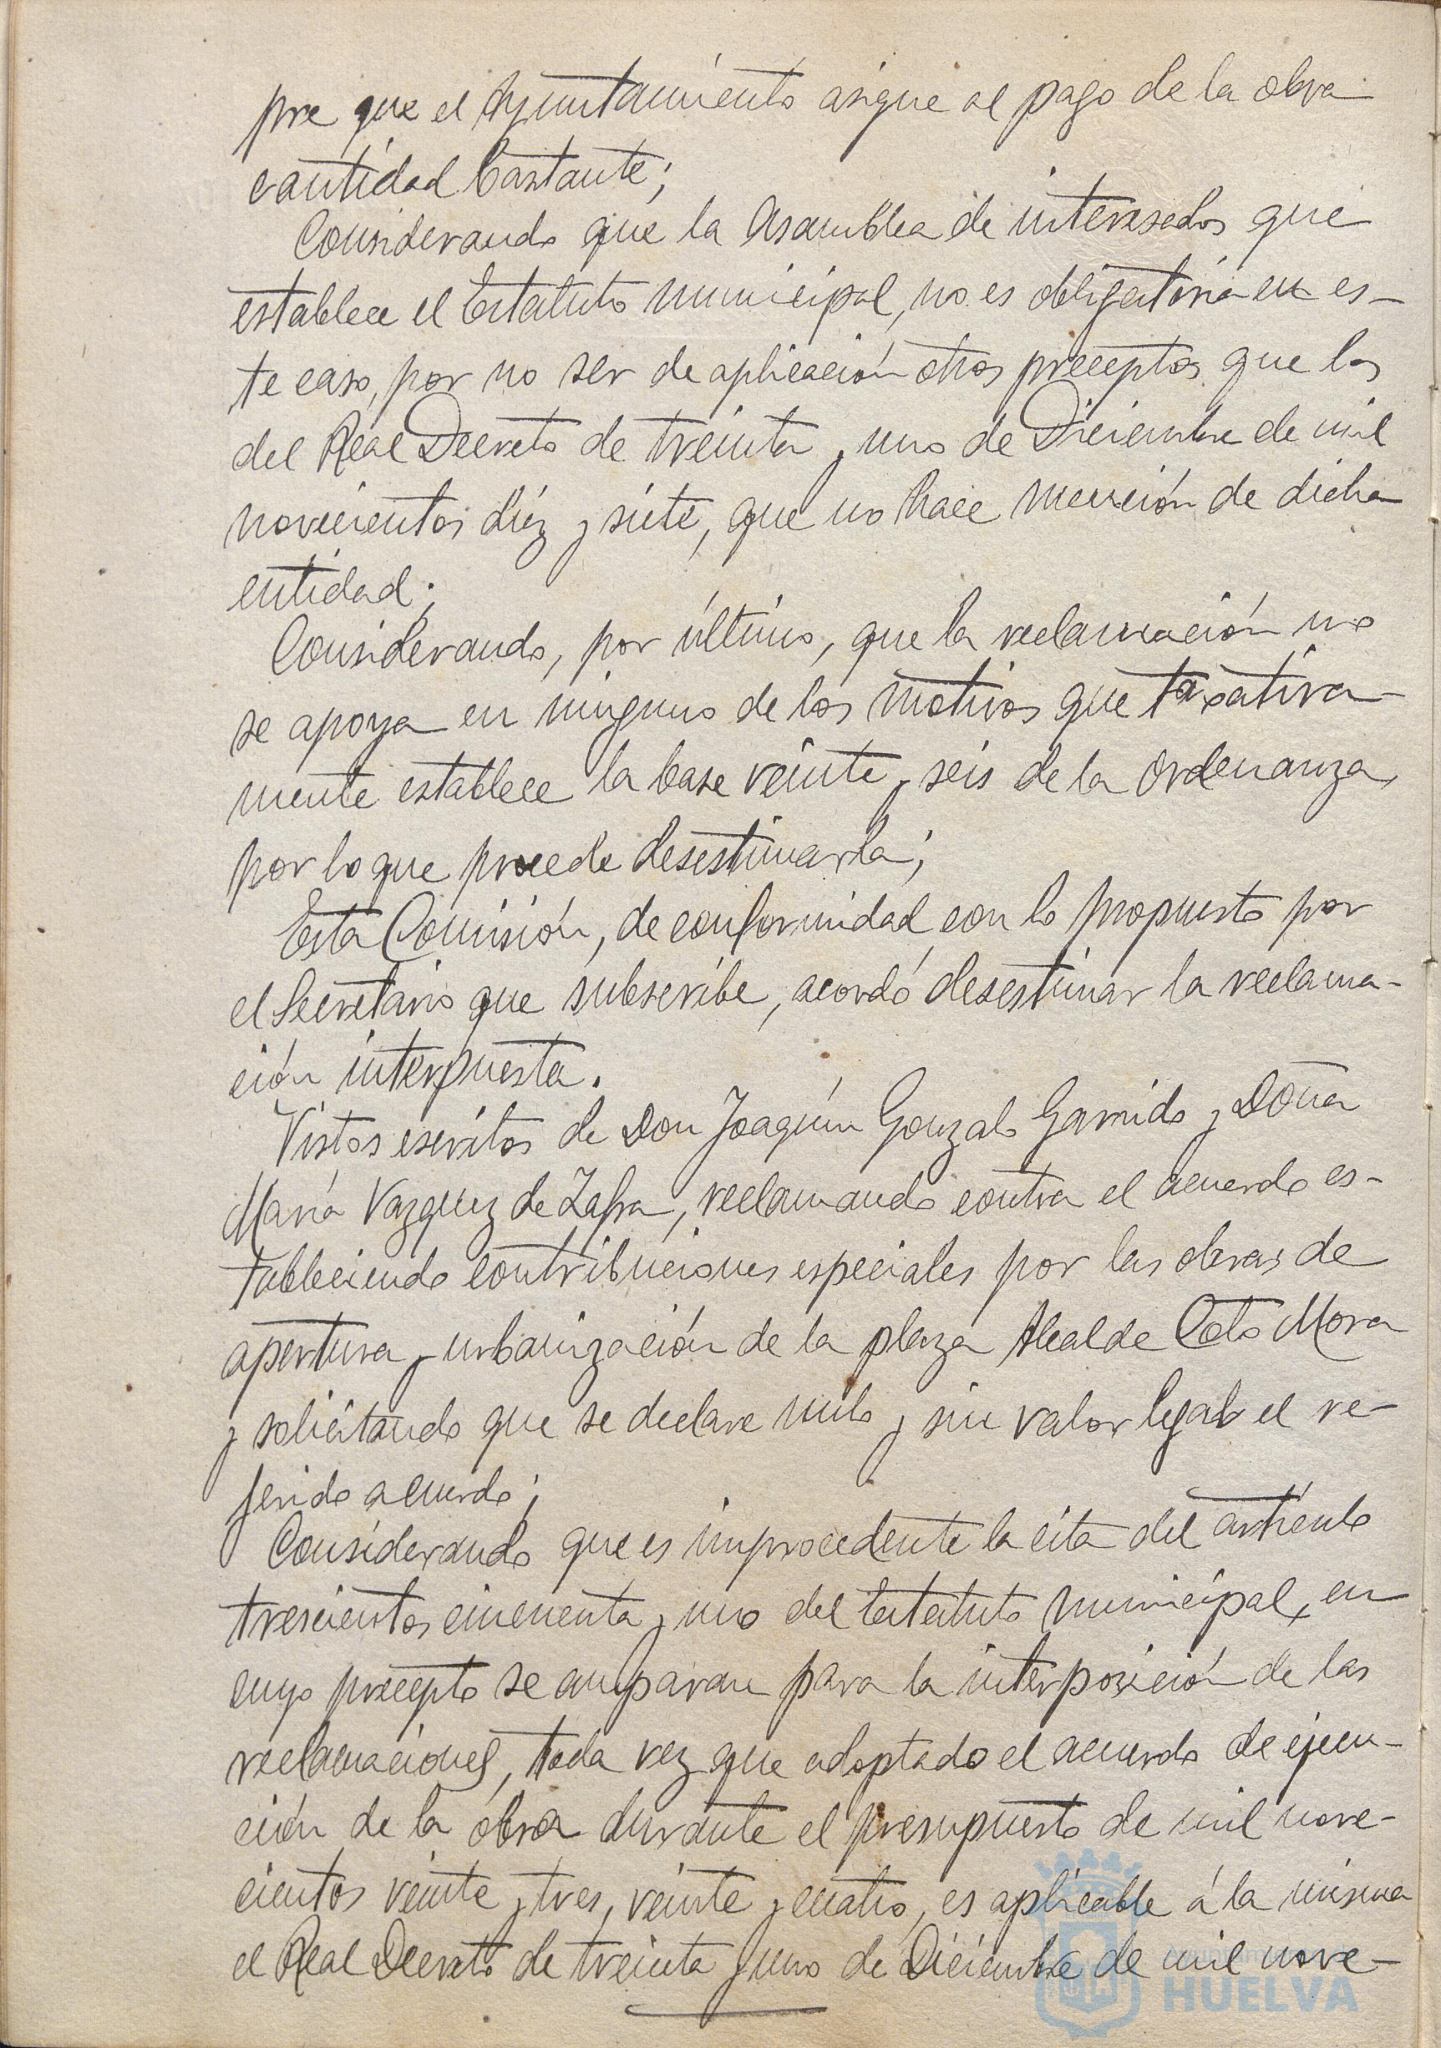 pre que el Ayuntamiento asigne al pago de la obra
cantidad bastante;
Considerando que la Asamblea de interesados que
establece el Estatuto municipal, no es obligatoria en es-
te caso, por no ser de aplicación otros preceptos que los
del Real Decreto de treinta y uno de Diciembre de mil
novecientos diez y siete, que no hace mención de dicha
entidad;
Considerando, por último, que la reclamación no
se apoya en ninguno de los motivos que taxativa-
mente establece la base veinte y seis de la Ordenanza,
por lo que procede desestimarla;
Esta Comisión, de conformidad con lo propuesto por
el Secretario que subscribe, acordó desestimar la reclama-
ción interpuesta.
Vistos escritos de Don Joaquín Gonzalo Garrido y Doña
María Vazquez de Zafra, reclamando contra el acuerdo es-
tableciendo contribuciones especiales por las obras de
apertura y urbanización de la plaza Alcalde Coto Mora
y solicitando que se declare nulo y sin valor legal el re-
ferido acuerdo;
Considerando que es improcedente la cita del artículo
trescientos cincuenta y uno del Estatuto municipal, en
cuyo precepto se amparan para la interposición de las
reclamaciones, toda vez que adoptado el acuerdo de ejecu-
ción de la obra durante el presupuesto de mil nove-
cientos veinte y tres, veinte y cuatro, es aplicable á la misma
el Real Decreto de treinta y uno de Diciembre de mil nove-
HUELVA